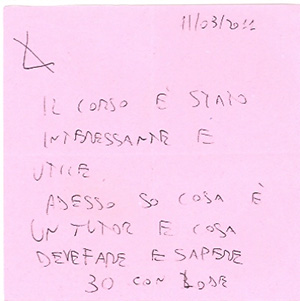 11/03/2011
IL CORSO È STATO
INTERESSANTE E
UTILE.
ADESSO SO COSA È
UN TUTOR E COSA
DEVE FARE E SAPERE
30 CON LODE